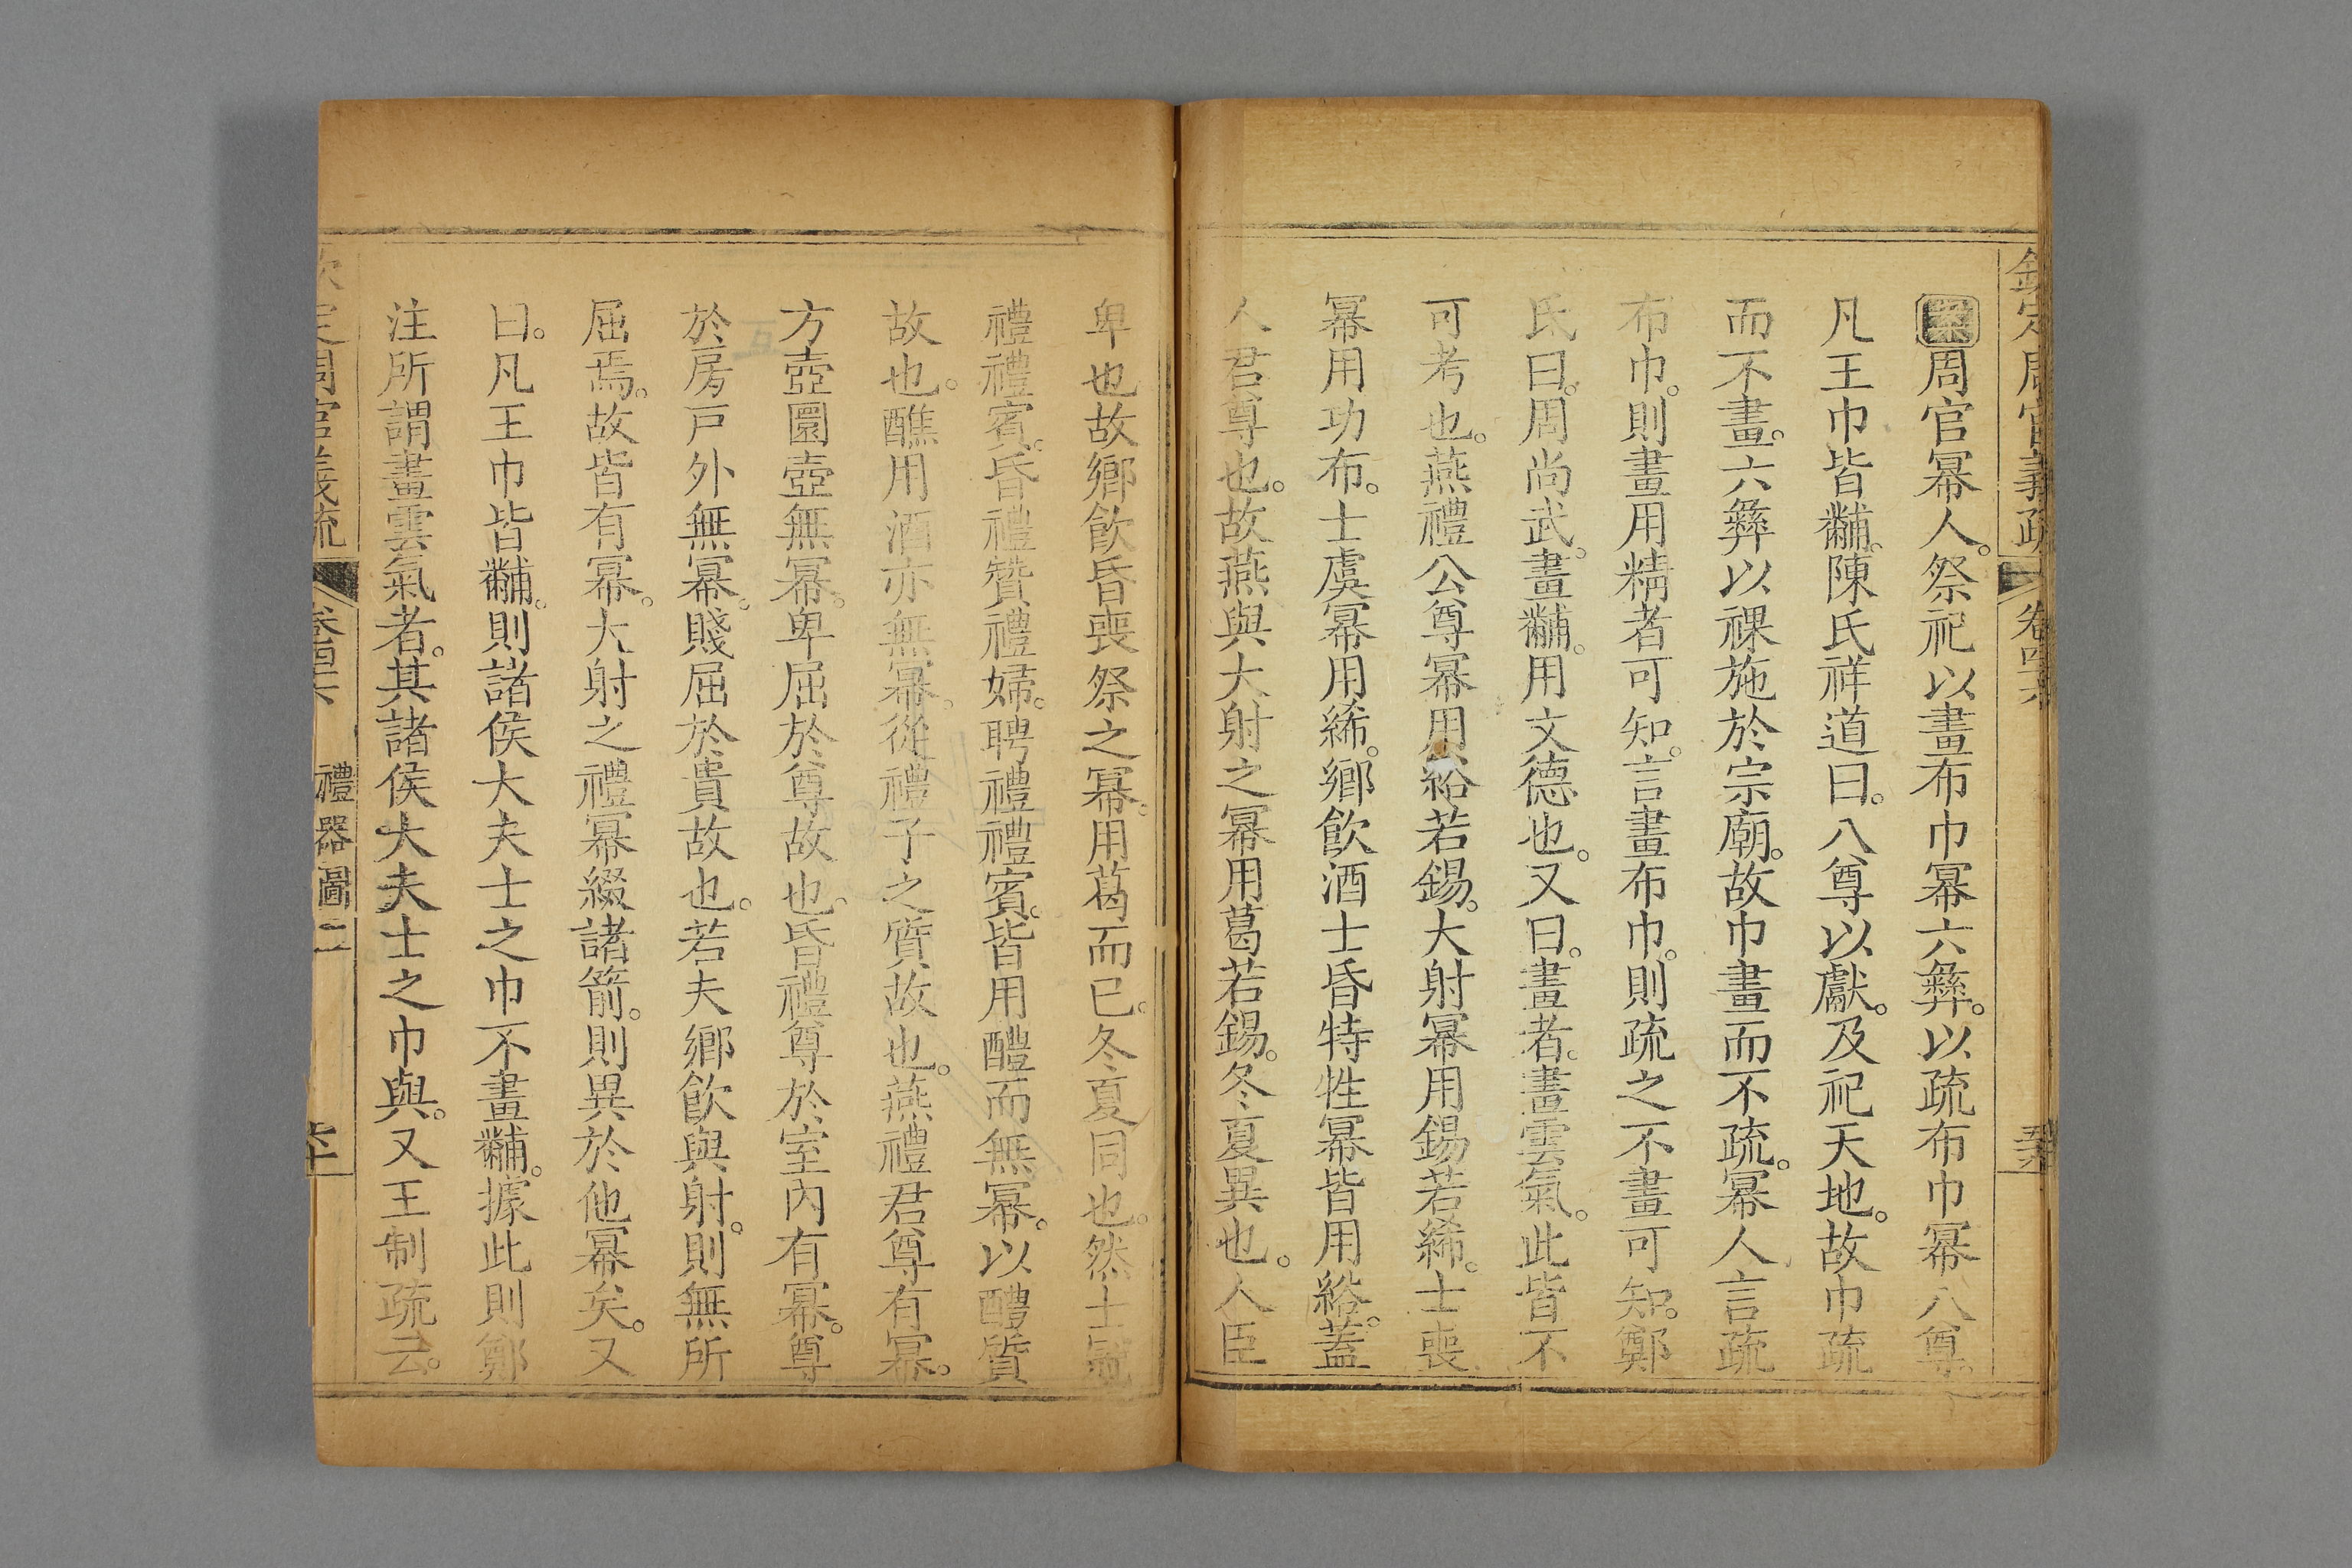 欽定周官義疏 卷四十六
案周官冪人。祭祀以畫布巾冪六彝。以疏布巾冪八尊。
凡王巾皆黼。陳氏祥道曰。八尊以獻。及祀天地。故巾疏
而不畫。六彝以祼施於宗廟。故巾畫而不疏。冪人言疏
布巾。則畫用精者可知。言畫布巾。則疏之不畫可知。鄭
氏曰。周尚武。畫黼。用文德也。又曰。畫者。畫雲氣。此皆不
可考也。燕禮公尊冪用綌若錫。大射冪用錫若絺。士喪
冪用功布。士虞冪用絺。鄉飲酒士昏特牲冪皆用綌。蓋
人君尊也。故燕與大射之冪用葛若錫。冬夏異也。人臣
卑也故鄉飲昏喪祭之冪。用葛而已。冬夏同也。然士冠
禮禮賓。昏禮贊禮婦。聘禮禮賓。皆用醴而無冪。以醴質
故也。醮用酒亦無冪。從禮子之質故也。燕禮君尊有冪。
方壺圜壺無冪。卑屈於尊故也。昏禮尊於室內有冪。尊
於房戶外無冪。賤屈於貴故也。若夫鄉飲與射。則無所
屈焉。故皆有冪。大射之禮冪綴諸箭。則異於他冪矣。又
曰。凡王巾皆黼。則諸侯大夫士之巾不畫黼。據此則鄭
注所謂畫雲氣者。其諸侯大夫士之巾與。又王制疏云。
欽定周官義疏 卷四十六 禮器圖二